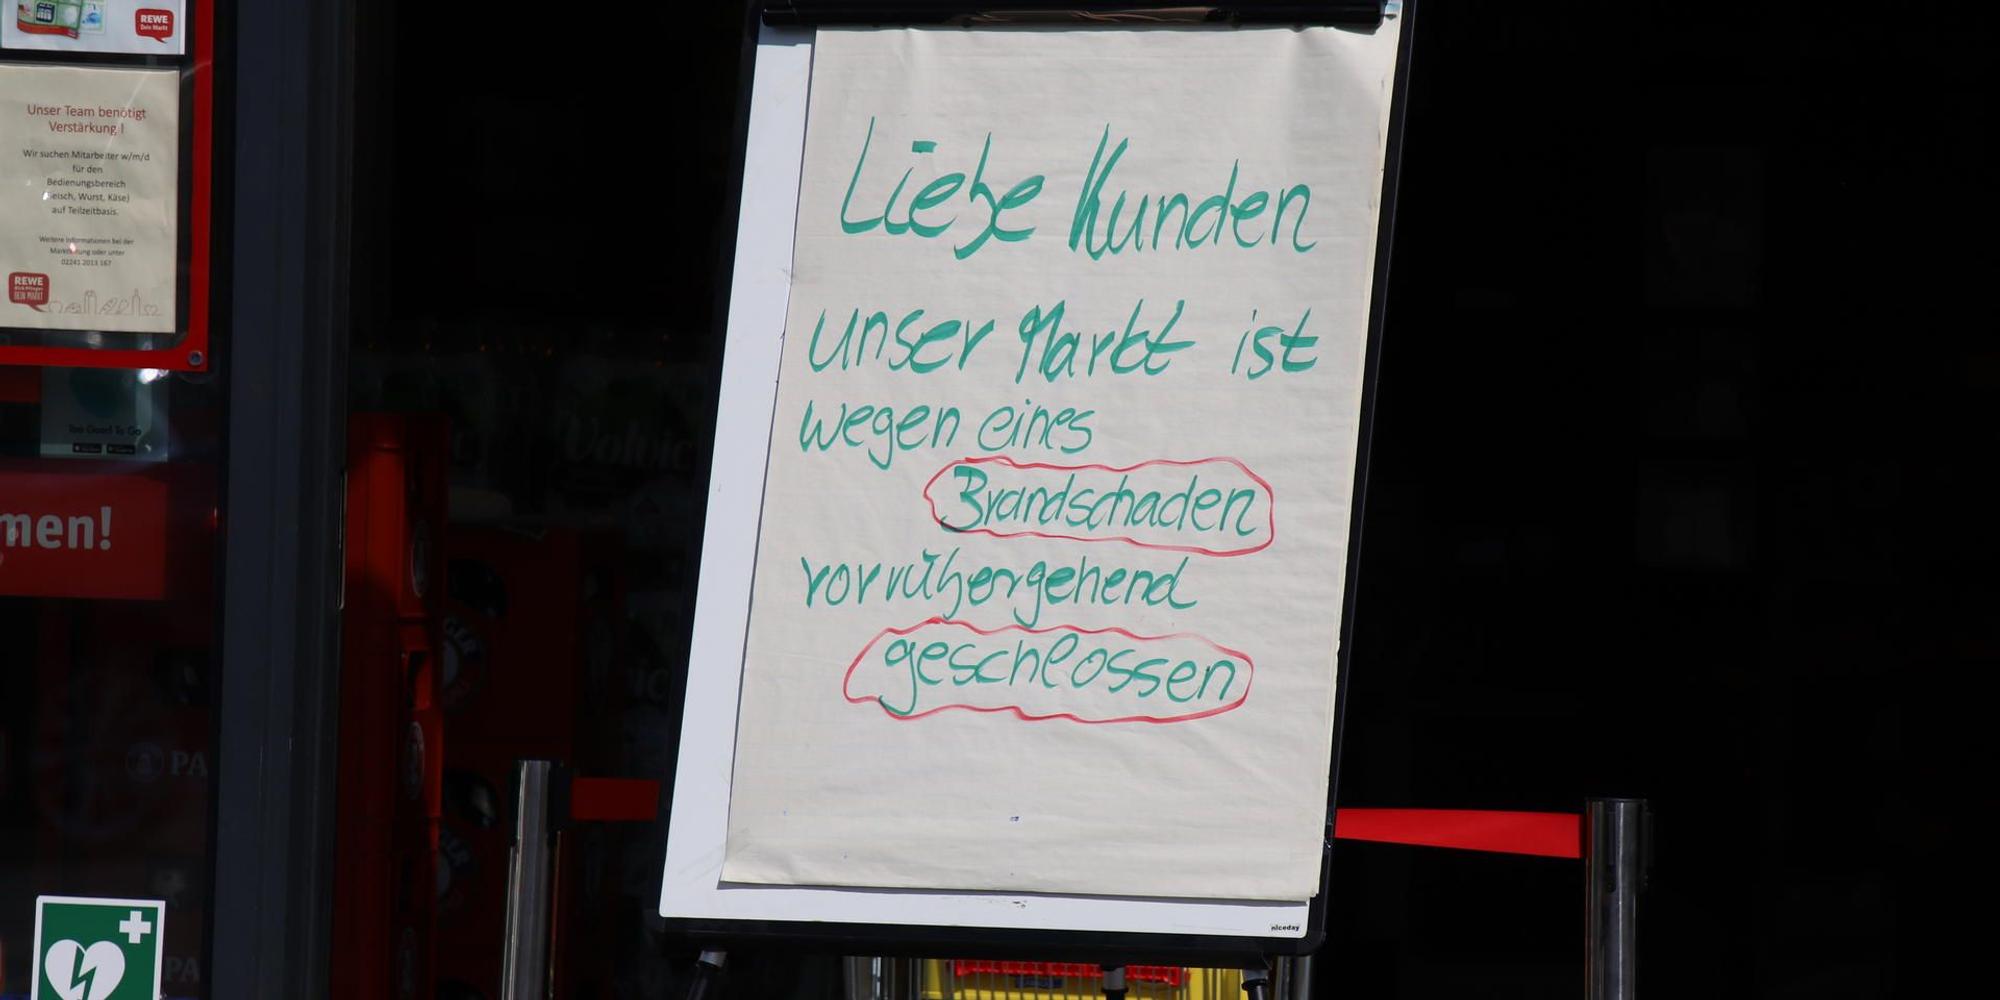 REWE
Dein Markt
Unser Team benötigt
Verstärkung !
Wir suchen Mitarbeiter w/m/d
für den
Bedienungsbereich
Wurst, Käse)
auf Teilzeitbasis.
Weitere Informationen bei der
oder unter
02241 2013 167
REWE
DEIN MARKT
Too Good To Go
men!
Volvic
PA
PA
Liebe Kunden
unser Markt ist
wegen eines
Brandschaden
vorrübergehend
geschlossen
niceday